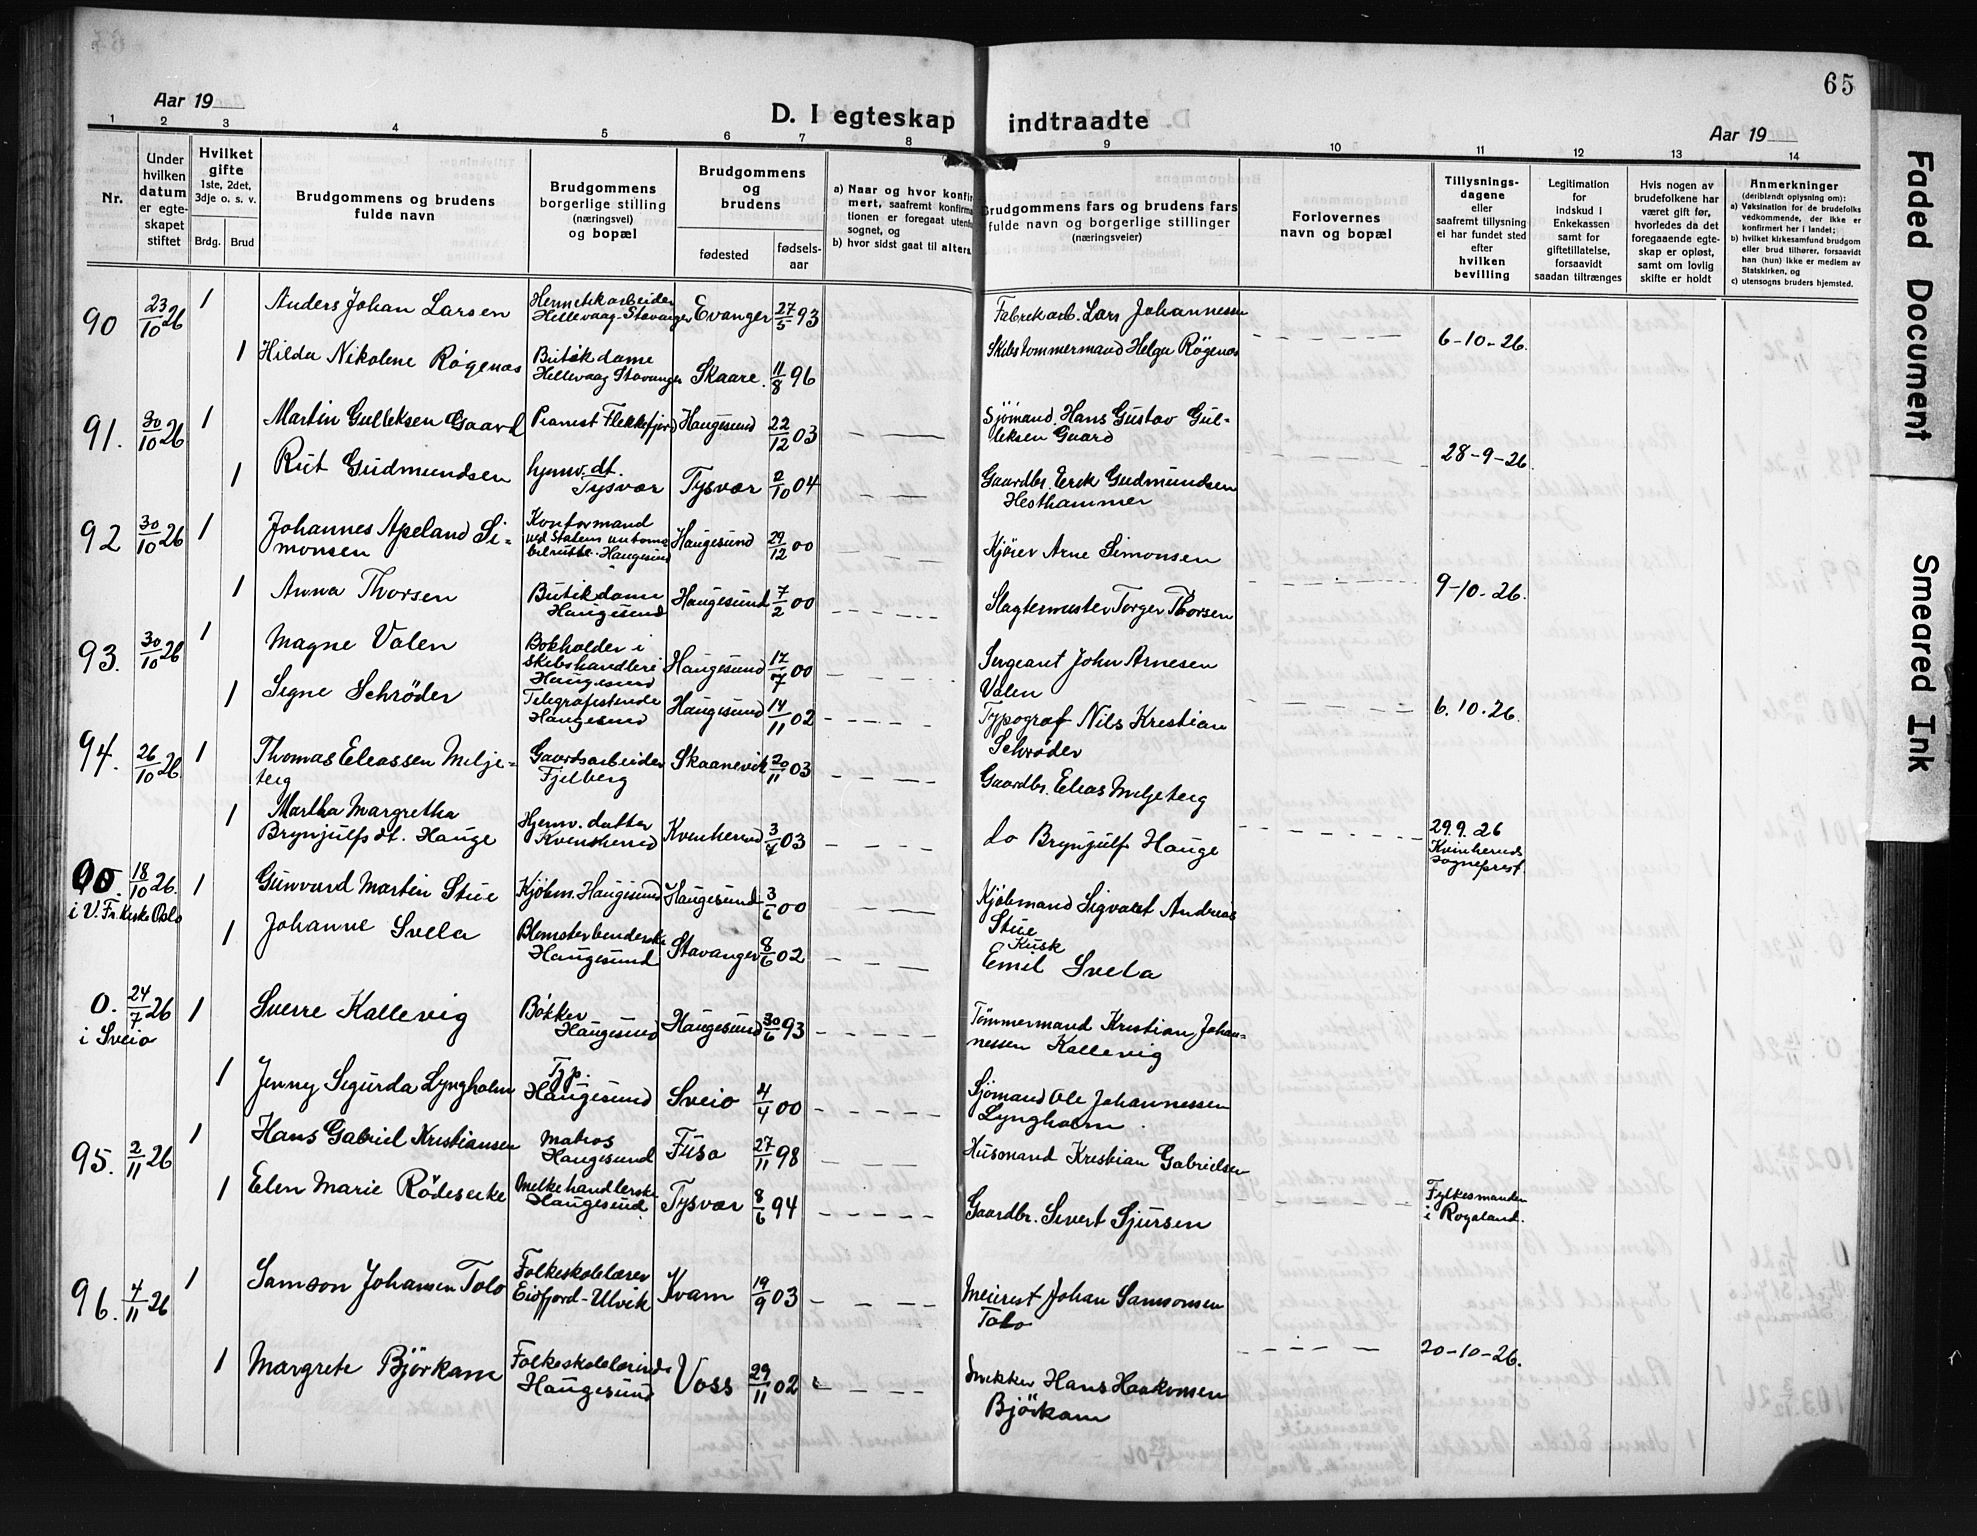 65
Aar 19
D. I egteskap indtraadte
Aar 19
1 2 3 4 5 6 7 8 9 10 11 12 13 14
Nr.
Under hvilken datum er egteskapet stiftet
Hvilket gifte 1ste, 2det, 3dje o. s. v.
Brdg. Brud
Brudgommens og brudens fulde navn
Brudgommens borgerlige stilling (næringsvei) og bopæl
Brudgommens og brudens
fødested
fødsels-aar
a) Naar og hvor konfir
mert, saafremt konfirma
tionen er foregaat utenfo
sognet, og
b) hvor sidst gaat til alters
Brudgommens fars og brudens fars
fulde navn og borgerlige stillinger
(næringsveier)
Forlovernes
navn og bopæl
Tillysnings-
dagene
eller
saafremt tillysning
ei har fundet sted
efter
hvilken
bevilling
Legitimation
for
indskud i
Enkekassen
samt for
giftetillatelse,
forsaavidt
saadan tiltrænges
Hvis nogen av
brudefolkene har
været gift før,
hvorledes da det
foregaaende egte-
skap er opløst,
samt om lovlig
skifte er holdt
Anmerkninger
(deriblandt oplysning om):
a) Vaksination for de brudefolks
vedkommende, der ikke er
konfirmert her i landet;
b) hvilket kirkesamfund brudgom
eller brud tilhører, forsaavidt
han (hun) ikke er medlem av
Statskirken, og
c) utensogns bruders hjemsted.
90 23/10 26 1 Anders Johan Larsen Hermetikarbeider Hellevaag-Stavanger Evanger 27/5 93 Fabrikarb. Lars Johannessen
1 Hilda Nikolene Røgenæs Butikdame Hellevaag Stavanger Skaare 11/8 96 Skibstømmermand Helge Røgenæs 6-10-26.
91. 30/10 26 1 Martin Gulleksen Gaard Pianist Flekkefjord Haugesund 22/12 03 Sjømand. Hans Gustav Gul-
leksen Gaard
1 Rut Gudmundsen hjemv. dt. Tysvær Tysvær 2/10 04 Gaardbr. Erik Gudmundsen 28-9-26.
Hesthammer
92 30/10 26 1 Johannes Apeland Si-
monsen Kontormand ved Statens automobilrute. Haugesund Haugesund 29/12 00 Kjører Arne Simonsen
1 Anna Thorsen Butikdame Haugesund Haugesund 7/2 00 Slagtermester Torger Thorsen 9-10-26.
93. 30/10 26 1 Magne Valen Bokholder i skibshandleri Haugesund Haugesund 17/7 00 Sergeant John Arnesen
Valen
1 Signe Schrøder Telegrafistinde Haugesund Haugesund 14/11 02 Typograf Nils Kristian 6.10.26.
Schrøder
94. 26/10 26 1 Thomas Eliassen Milje-
teig Gaardsarbeider Fjelberg Skaanevik 20/11 03 Gaardbr. Elias Miljeteig
1 Martha Margretha
Brynjulfs dt. Hauge Hjemv. datter Kvinherred Kvinherred 3/7 03 do Brynjulf Hauge 29.9.26
Kvinherreds
sogneprest.
18/10 26.
i V. Fr. kirke Oslo 1 Gunvard Martin Stue Kjøbm. Haugesund Haugesund 3/6 00 Kjøbmand Sigvald Andreas
Stue
1 Johanne Svela Blomsterbinderske Haugesund Stavanger 8/6 02 Kusk
Emil Svela
0. 24/7 26
i Sveio 1 Sverre Kallevig Bøkker Haugesund Haugesund 30/6 93 Tømmermand Kristian Johan-
nessen Kallevig
1 Jenny Sigurda Lyngholm Typ. Haugesund Sveio 4/4 00 Sjømand Ole Johannessen
Lyngholm
95. 2/11 26 1 Hans Gabriel Kristiansen Matros Haugesund Fusa 27/11 98 Husmand Kristian Gabrielsen
1 Elen Marie Rødeseike Melkehandlerske Haugesund Tysvær 8/6 94 Gaardbr. Sivert Sjursen Fylkesmanden
i Rogaland.
96. 4/11 26 1 Samson Johansen Tolo Folkeskolelærer Eidfjord-Ulvik Kvam 19/9 03 Meierist Johan Samsonsen
Tolo
1 Margrete Bjørkam Folkeskolelærinde Haugesund Voss 29/11 02 Snikker Hans Haakonsen 20-10-26.
Bjørkam
Faded Document
Smeared Ink